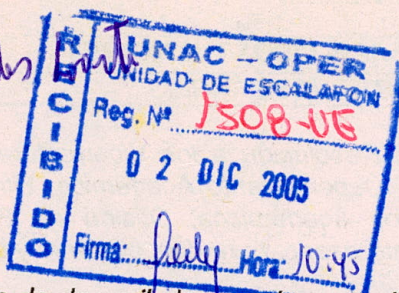 RECIBIDO
UNAC - OPER
UNIDAD DE ESCALAFON
Reg. Nº 1508-UE
02 DIC 2005
Firma: Hora: 10:45